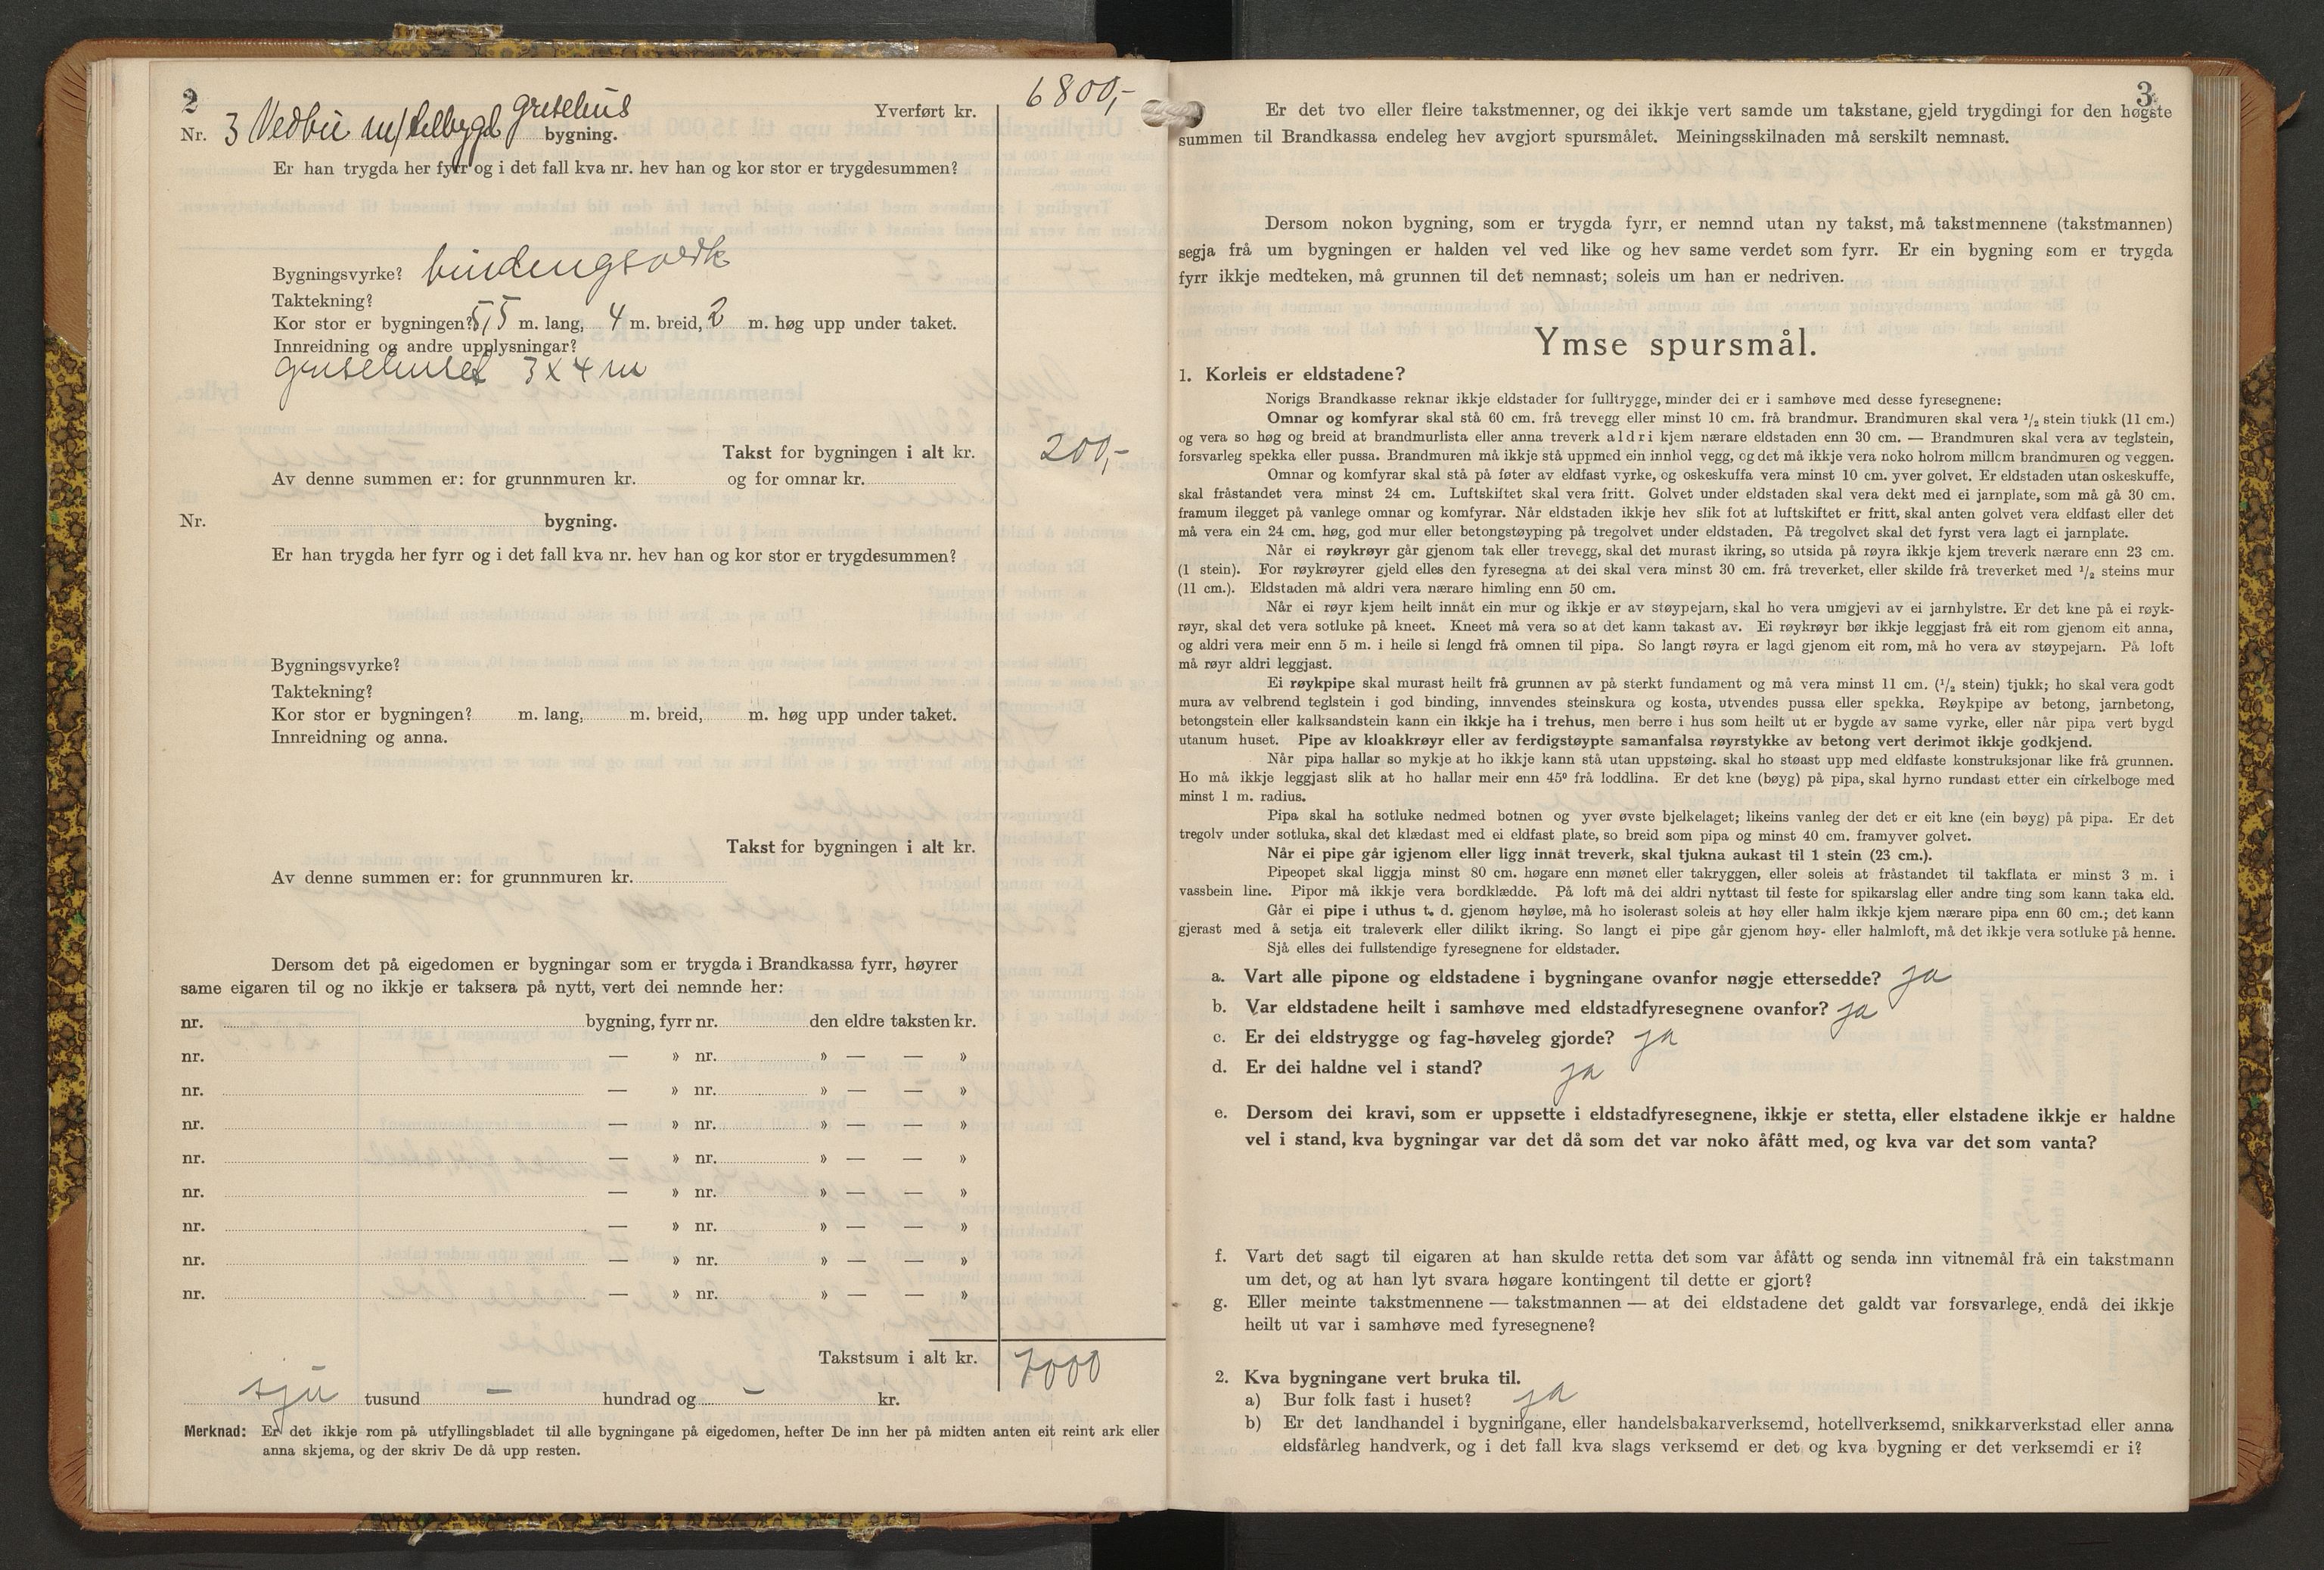 2
Yverført kr. 6800,-
Nr. 3 Vedbu m/tilbygd grisehus bygning.
Er han trygda her fyrr og i det fall kva nr. hev han og kor stor er trygdesummen?
Bygningsvyrke? bindingsverk
Taktekning?
Kor stor er bygningen? 5,5 m. lang, 4 m. breid, 2 m. høg upp under taket.
Innreidning og andre upplysningar?
grisehuset 3 x 4 m
Takst for bygningen i alt kr. 200,-
Av denne summen er: for grunnmuren kr. og for omnar kr.
Nr. bygning.
Er han trygda her fyrr og i det fall kva nr. hev han og kor stor er trygdesummen?
Bygningsvyrke?
Taktekning?
Kor stor er bygningen? m. lang, m. breid, m. høg upp under taket.
Innreidning og anna.
Takst for bygningen i alt kr.
Av denne summen er: for grunnmuren kr.
Dersom det på eigedomen er bygningar som er trygda i Brandkassa fyrr, høyrer
same eigaren til og no ikkje er taksera på nytt, vert dei nemnde her:
nr. bygning, fyrr nr. den eldre taksten kr.
nr. — » nr. » — — »
nr. — » nr. » — — »
nr. — » nr. » — — »
nr. — » nr. » — — »
nr. — » nr. » — — »
nr. — » nr. » — — »
nr. — » nr. » — — »
nr. — » nr. » — — »
Takstsum i alt kr. 7000
sju tusund — hundrad og — kr.
Merknad: Er det ikkje rom på utfyllingsbladet til alle bygningane på eigedomen, hefter De inn her på midten anten eit reint ark eller
anna skjema, og der skriv De då upp resten.
3
Er det tvo eller fleire takstmenner, og dei ikkje vert samde um takstane, gjeld trygdingi for den høgste
summen til Brandkassa endeleg hev avgjort spursmålet. Meiningsskilnaden må serskilt nemnast.
Dersom nokon bygning, som er trygda fyrr, er nemnd utan ny takst, må takstmennene (takstmannen)
segja frå um bygningen er halden vel ved like og hev same verdet som fyrr. Er ein bygning som er trygda
fyrr ikkje medteken, må grunnen til det nemnast; soleis um han er nedriven.
Ymse spursmål.
1. Korleis er eldstadene?
Norigs Brandkasse reknar ikkje eldstader for fulltrygge, minder dei er i samhøve med desse fyresegnene:
Omnar og komfyrar skal stå 60 cm. frå trevegg eller minst 10 cm. frå brandmur. Brandmuren skal vera 1/2 stein tjukk (11 cm.)
og vera so høg og breid at brandmurlista eller anna treverk aldri kjem nærare eldstaden enn 30 cm. — Brandmuren skal vera av teglstein,
forsvarleg spekka eller pussa. Brandmuren må ikkje stå uppmed ein innhol vegg, og det må ikkje vera noko holrom millom brandmuren og veggen.
Omnar og komfyrar skal stå på føter av eldfast vyrke, og oskeskuffa vera minst 10 cm. yver golvet. Er eldstaden utan oskeskuffe,
skal fråstandet vera minst 24 cm. Luftskiftet skal vera fritt. Golvet under eldstaden skal vera dekt med ei jarnplate, som må gå 30 cm.
framum ilegget på vanlege omnar og komfyrar. Når eldstaden ikkje hev slik fot at luftskiftet er fritt, skal anten golvet vera eldfast eller det
må vera ein 24 cm. høg, god mur eller betongstøyping på tregolvet under eldstaden. På tregolvet skal det fyrst vera lagt ei jarnplate.
Når ei røykrøyr går gjenom tak eller trevegg, skal det murast ikring, so utsida på røyra ikkje kjem treverk nærare enn 23 cm.
(1 stein). For røykrøyrer gjeld elles den fyresegna at dei skal vera minst 30 cm. frå treverket, eller skilde frå treverket med 1/2 steins mur
(11 cm.). Eldstaden må aldri vera nærare himling enn 50 cm.
Når ei røyr kjem heilt innåt ein mur og ikkje er av støypejarn, skal ho vera umgjevi av ei jarnhylstre. Er det kne på ei røyk-
røyr, skal det vera sotluke på kneet. Kneet må vera so at det kann takast av. Ei røykrøyr bør ikkje leggjast frå eit rom gjenom eit anna,
og aldri vera meir enn 5 m. i heile si lengd frå omnen til pipa. So langt røyra er lagd gjenom eit rom, må ho vera av støypejarn. På loft
må røyr aldri leggjast.
Ei røykpipe skal murast heilt frå grunnen av på sterkt fundament og må vera minst 11 cm. (1/2 stein) tjukk; ho skal vera godt
mura av velbrend teglstein i god binding, innvendes steinskura og kosta, utvendes pussa eller spekka. Røykpipe av betong, jarnbetong,
betongstein eller kalksandstein kann ein ikkje ha i trehus, men berre i hus som heilt ut er bygde av same vyrke, eller når pipa vert bygd
utanum huset. Pipe av kloakkrøyr eller av ferdigstøypte samanfalsa røyrstykke av betong vert derimot ikkje godkjend.
Når pipa hallar so mykje at ho ikkje kann stå utan uppstøing. skal ho støast upp med eldfaste konstruksjonar like frå grunnen.
Ho må ikkje leggjast slik at ho hallar meir enn 45° frå loddlina. Er det kne (bøyg) på pipa, skal hyrno rundast etter ein cirkelboge med
minst 1 m. radius.
Pipa skal ha sotluke nedmed botnen og yver øvste bjelkelaget; likeins vanleg der det er eit kne (ein bøyg) på pipa. Er det
tregolv under sotluka, skal det klædast med ei eldfast plate, so breid som pipa og minst 40 cm. framyver golvet.
Når ei pipe går igjenom eller ligg innåt treverk, skal tjukna aukast til 1 stein (23 cm.).
Pipeopet skal liggja minst 80 cm. høgare enn mønet eller takryggen, eller soleis at fråstandet til takflata er minst 3 m. i
vassbein line. Pipor må ikkje vera bordklædde. På loft må dei aldri nyttast til feste for spikarslag eller andre ting som kann taka eld.
Går ei pipe i uthus t. d. gjenom høyløe, må ho isolerast soleis at høy eller halm ikkje kjem nærare pipa enn 60 cm.; det kann
gjerast med å setja eit traleverk eller dilikt ikring. So langt ei pipe går gjenom høy- eller halmloft, må det ikkje vera sotluke på henne.
Sjå elles dei fullstendige fyresegnene for eldstader.
a. Vart alle pipone og eldstadene i bygningane ovanfor nøgje ettersedde? ja
b. Var eldstadene heilt i samhøve med eldstadfyresegnene ovanfor? ja
c. Er dei eldstrygge og fag-høveleg gjorde? ja
d. Er dei haldne vel i stand? ja
e. Dersom dei kravi, som er uppsette i eldstadfyresegnene, ikkje er stetta, eller elstadene ikkje er haldne
vel i stand, kva bygningar var det då som det var noko åfått med, og kva var det som vanta?
f. Vart det sagt til eigaren at han skulde retta det som var åfått og senda inn vitnemål frå ein takstmann
um det, og at han lyt svara høgare kontingent til dette er gjort?
g. Eller meinte takstmennene — takstmannen — at dei eldstadene det galdt var forsvarlege, endå dei ikkje
heilt ut var i samhøve med fyresegnene?
2. Kva bygningane vert bruka til.
a) Bur folk fast i huset? ja
b) Er det landhandel i bygningane, eller handelsbakarverksemd, hotellverksemd, snikkarverkstad eller anna
eldsfårleg handverk, og i det fall kva slags verksemd er det og kva bygning er det verksemdi er i?